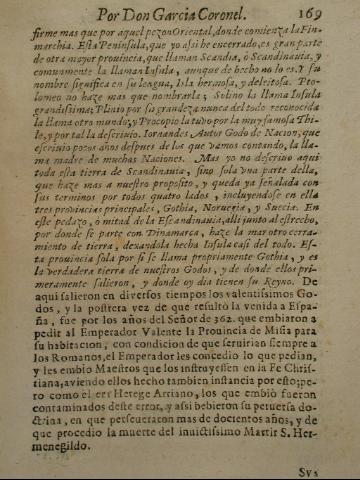 Por Don Garcia Coronel. 169
firme mas que por aquel pezon Oriental, donde comiença la Fin-
marchia. Esta Peninsula, que yo assi he encerrado, es gran parte
de otra mayor prouincia, que llaman Scandia, ò Scandinauia, y
comunmente la llaman Insula, aunque de hecho no lo es. Y su
nombre significa en su lengua, Isla hermosa, y deleitosa. Pto-
lomeo no haze mas que nombrarla; Solino la llama Insula
grandissima; Plinio por su grandeza nunca del todo reconocida
la llama otro mundo; y Procopio la tubo por la muy famosa Thi-
le, y por tal la descriuio. Iornandes Autor Godo de Nacion, que
escriuio pocos años despues de los que vamos contando, la lla-
ma madre de muchas Naciones. Mas yo no descriuo aqui
toda esta tierra de Scandinauia, sino sola vna parte della,
que haze mas a nuestro proposito, y queda ya señalada con
sus terminos por todos quatro lados, incluyendose en ella
tres prouincias principales, Gothia, Noruegia, y Suecia. En
este pedaço, ò mitad de la Escandinauia, alli junto al estrecho,
por donde se parte con Dinamarca, haze la mar otro cerra-
miento de tierra, dexandola hecha Insula casi del todo. Es-
ta prouincia sola por si se llama propriamente Gothia, y es
la verdadera tierra de nuestros Godos, y de donde ellos pri-
meramente salieron, y donde oy dia tienen su Reyno. De
aqui salieron en diuersos tiempos los valentissimos Go-
dos, y la postrera vez de que resultò la venida a Espa-
ña, fue por los años del Señor de 362. que embiaron a
pedir al Emperador Valente la Prouincia de Misia para
su habitacion, con condicion de que seruirian siempre a
los Romanos, el Emperador les concedio lo que pedian,
y les embio Maestros que los instruyessen en la Fe Chris-
tiana, auiendo ellos hecho tambien instancia por esto; pe-
ro como el era Herege Arriano, los que embiò fueron
contaminados deste error, y assi bebieron su peruersa do-
ctrina, en que perseueraron mas de docientos años, y de
que procedio la muerte del inuictissimo Martir S. Her-
menegildo.
Sus